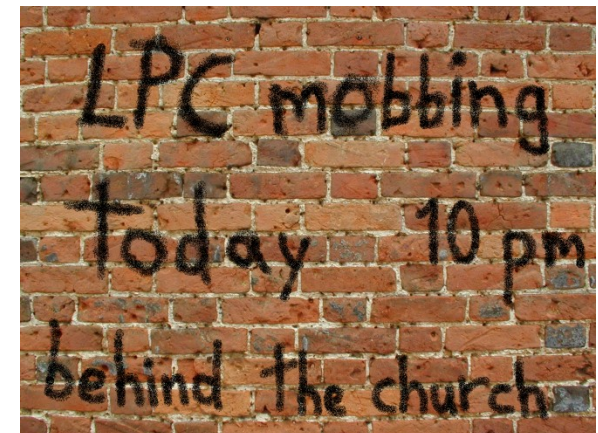 LPC mobbing
today 10 pm
behind the church